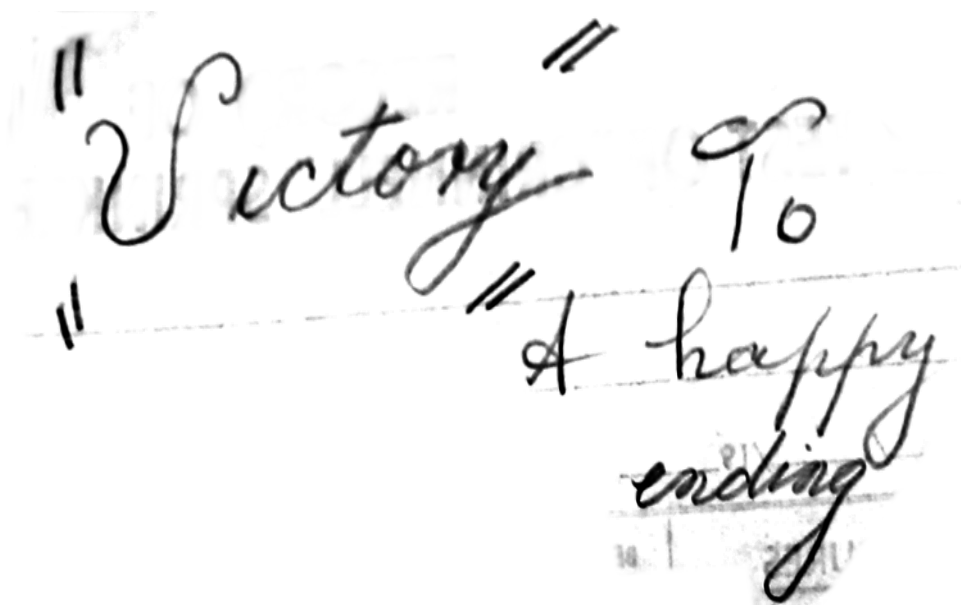 "Victory" To
" " A happy
ending